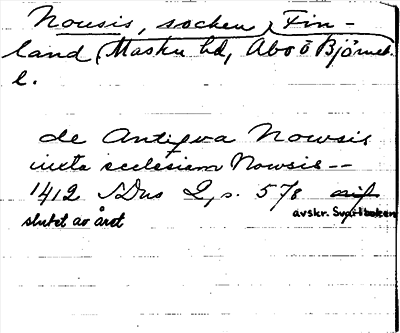 Nousis, socken, Fin-
land (Masku hd, Åbo o Björneb.
l.
de Antiqva Nowsis
iuxta ecclesiam Nowsis--
1412 SDns 2, s. 578 orig
slutet av året avskr. Svartboken